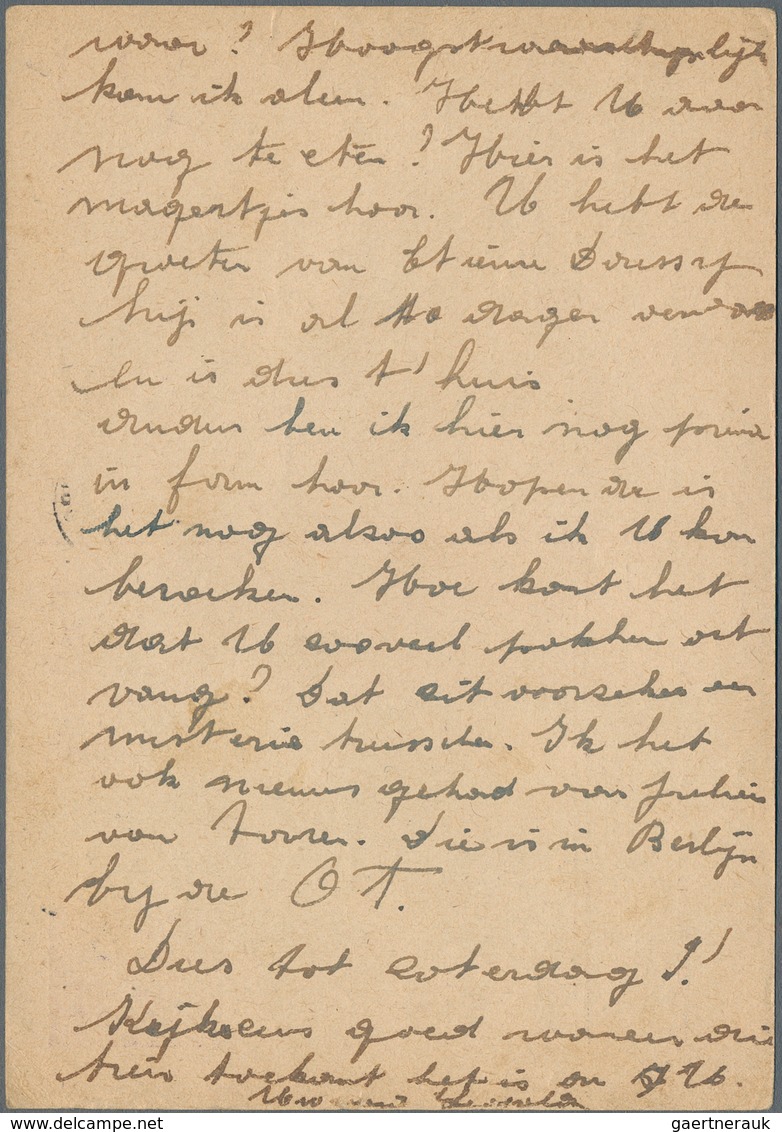 waar? Hoogstwaarschijnlijk
kom ik aleen. Hebt U daar
nog te eten? Hier is het
magertjes hoor. U hebt de
groeten van Etiene Doussy
hij is al dagen
en is dus t' huis
anders ben ik hier nog prima
in form hoor. Hopende is
het nog alsoo als ik U kom
bezoeken. Hoe komt het
dat U zooveel pakken ont
vang? Dat zit voorzeker een
misterie tusschen. Ik het
ook nieuws gehad van Julien
van Tooren. Die is in Berlijn
by de OT.
Dus tot zaterdag!!
Kijk eens goed waneer die
trein toekomt het is on 7 U.
Uw
gaertnerauk